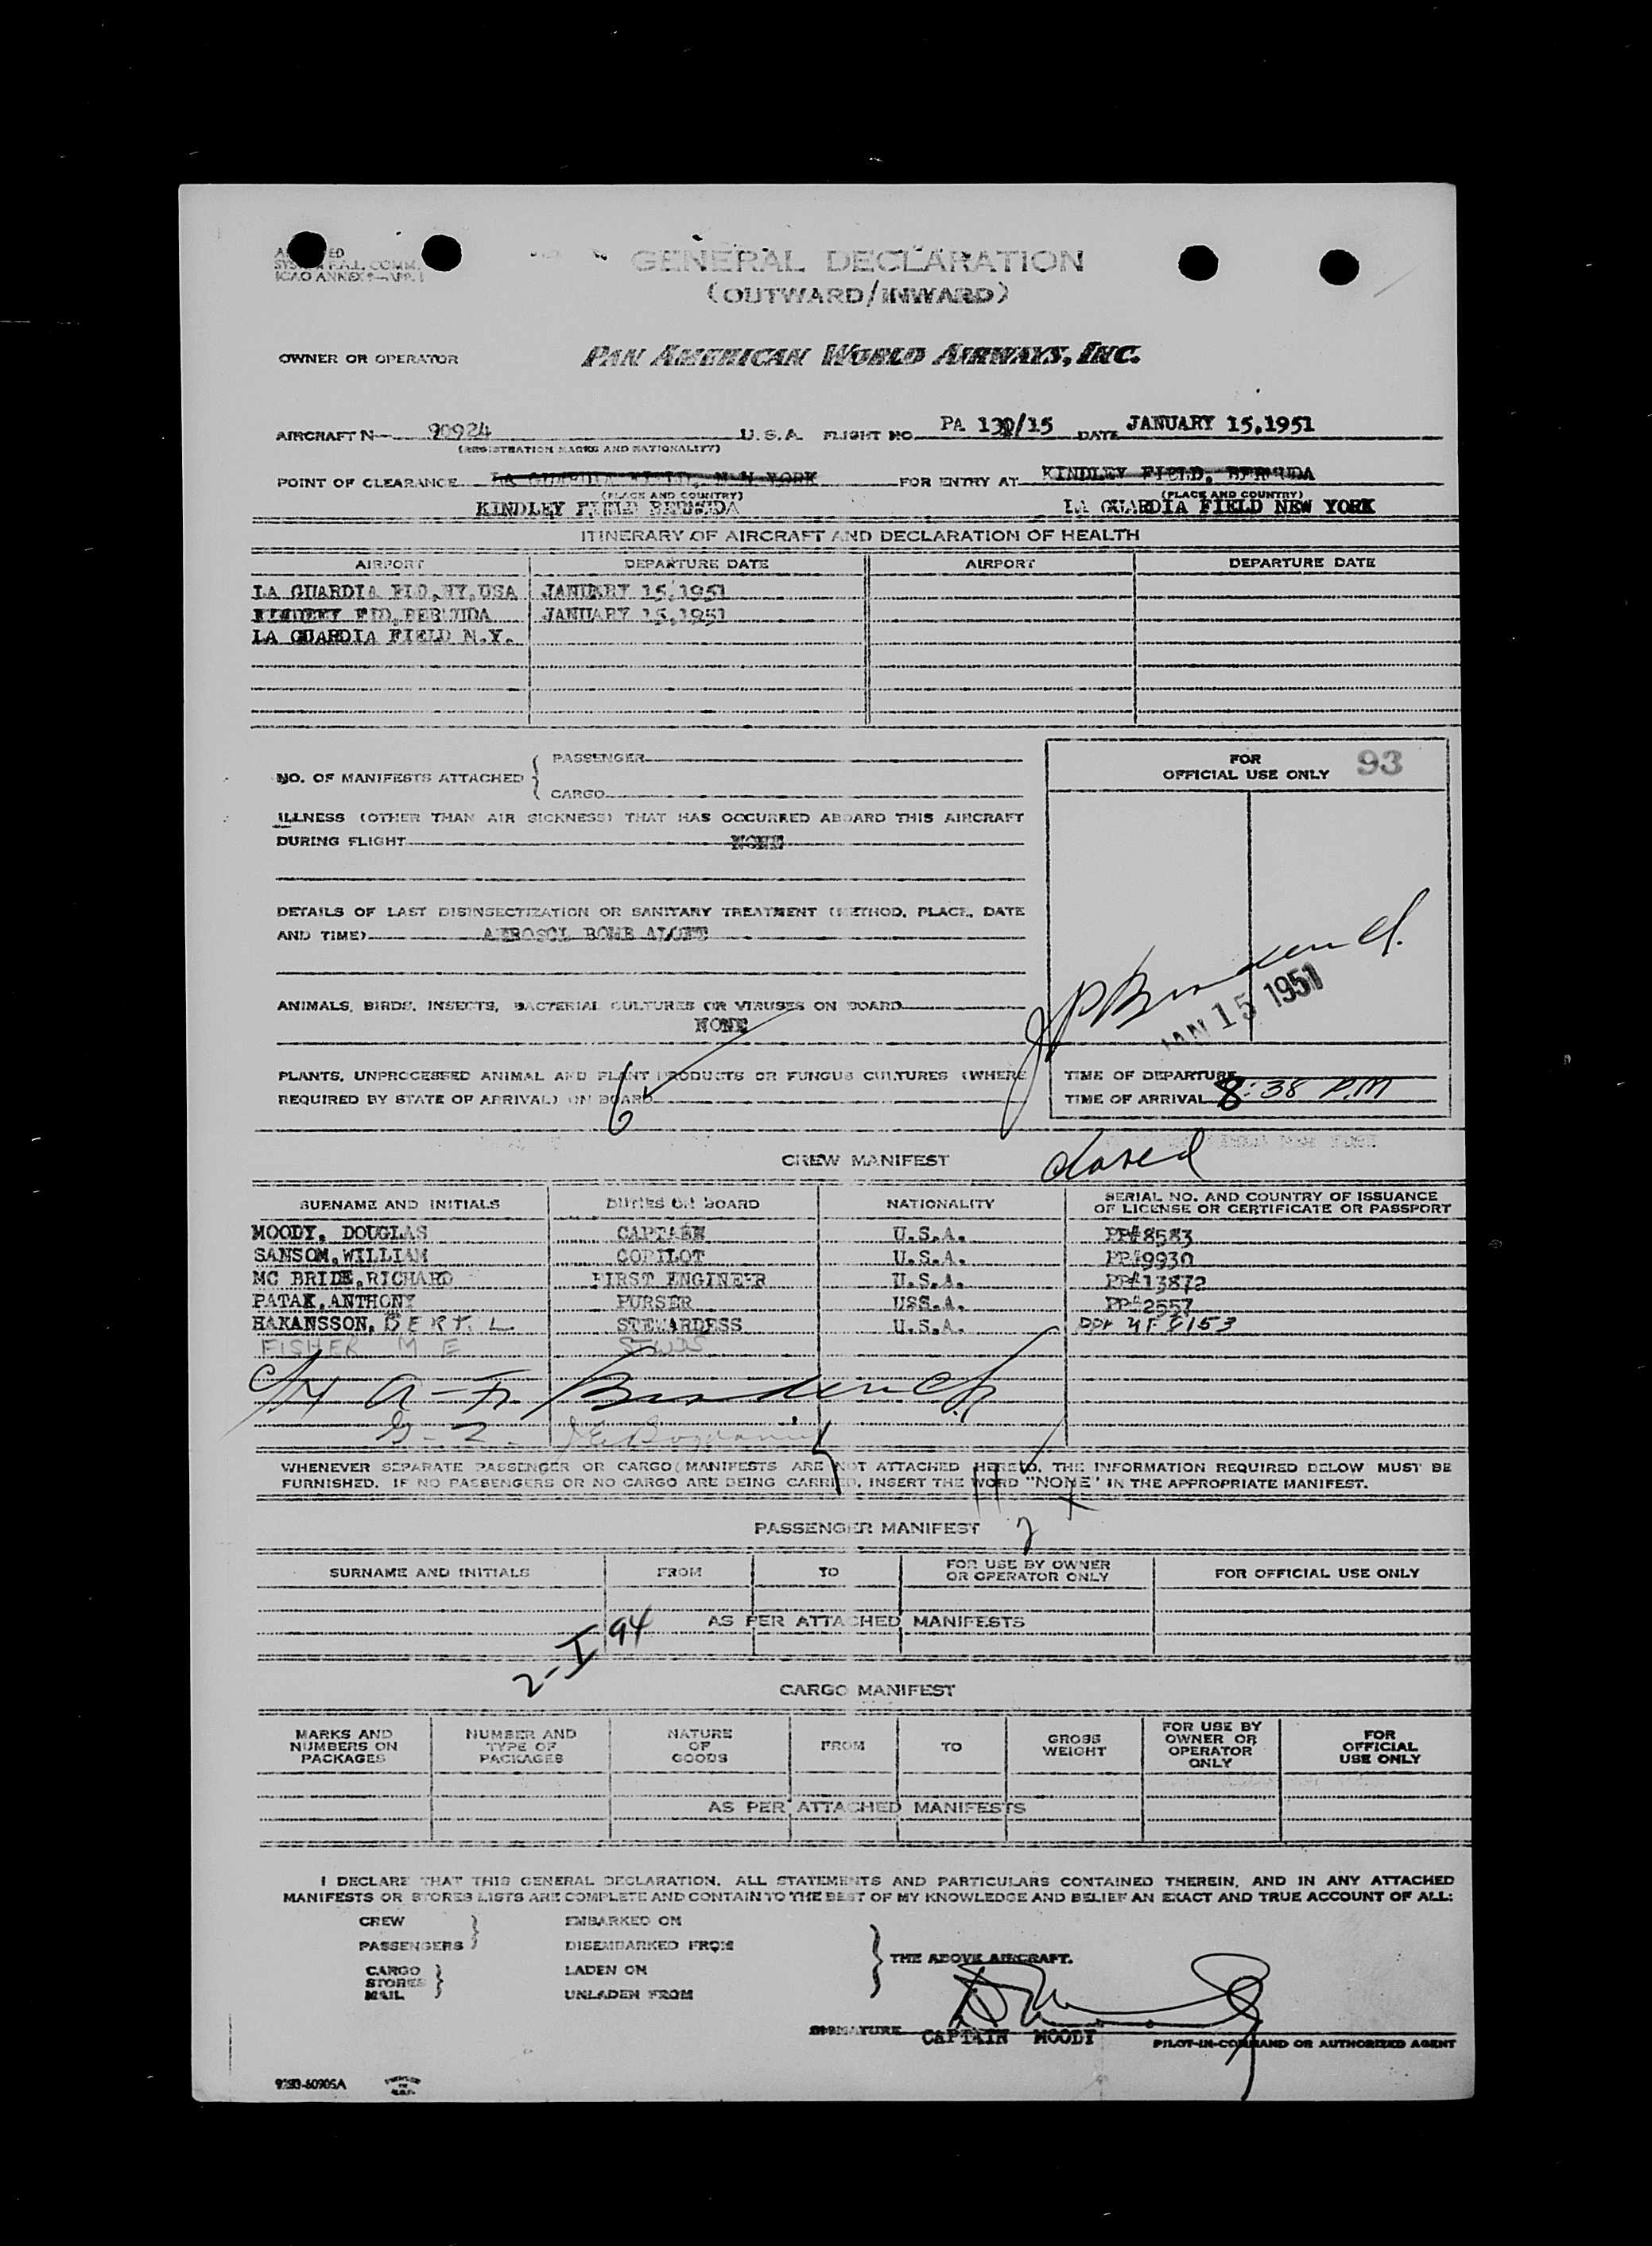 GENERAL DECLARATION
(OUTWARD/INWARD)
ICAO ANNEX 9—APP. 1
OWNER OR OPERATOR PAN AMERICAN WORLD AIRWAYS, INC.
AIRCRAFT N— 90924 U.S.A. FLIGHT NO. PA 130/15 DATE JANUARY 15,1951
(REGISTRATION MARKS AND NATIONALITY)
POINT OF CLEARANCE LA GUARDIA FIELD, N.W YORK FOR ENTRY AT KINDLEY FIELD, BERMUDA
(PLACE AND COUNTRY) (PLACE AND COUNTRY)
KINDLEY FIELD BERMUDA LA GUARDIA FIELD NEW YORK
ITINERARY OF AIRCRAFT AND DECLARATION OF HEALTH
AIRPORT DEPARTURE DATE AIRPORT DEPARTURE DATE
LA GUARDIA FLD,NY,USA JANUARY 15,1951
KINDLEY FLD,BERMUDA JANUARY 15,1951
LA GUARDIA FIELD N.Y.
NO. OF MANIFESTS ATTACHED { PASSENGER
CARGO
FOR OFFICIAL USE ONLY 93
ILLNESS (OTHER THAN AIR SICKNESS) THAT HAS OCCURRED ABOARD THIS AIRCRAFT
DURING FLIGHT NONE
DETAILS OF LAST DISINSECTIZATION OR SANITARY TREATMENT (METHOD, PLACE, DATE
AND TIME) AEROSOL BOMB ALOFT
JAN 15 1951
ANIMALS, BIRDS, INSECTS, BACTERIAL CULTURES OR VIRUSES ON BOARD
NONE
PLANTS, UNPROCESSED ANIMAL AND PLANT PRODUCTS OR FUNGUS CULTURES (WHERE
REQUIRED BY STATE OF ARRIVAL) ON BOARD
6
TIME OF DEPARTURE
TIME OF ARRIVAL 8:38 P.M
CREW MANIFEST
SURNAME AND INITIALS DUTIES ON BOARD NATIONALITY SERIAL NO. AND COUNTRY OF ISSUANCE
OF LICENSE OR CERTIFICATE OR PASSPORT
MOODY, DOUGLAS CAPTAIN U.S.A. PP#8583
SANSOM,WILLIAM COPILOT U.S.A. PP#9930
MC BRIDE,RICHARD FIRST ENGINEER U.S.A. PP#13872
PATAK,ANTHONY PURSER USS.A. PP#2557
HAKANSSON, BERT. L. STEWARDESS U.S.A.
FISHER M E STWDS
G-2
WHENEVER SEPARATE PASSENGER OR CARGO MANIFESTS ARE NOT ATTACHED HERETO, THE INFORMATION REQUIRED BELOW MUST BE
FURNISHED. IF NO PASSENGERS OR NO CARGO ARE BEING CARRIED, INSERT THE WORD "NONE" IN THE APPROPRIATE MANIFEST.
PASSENGER MANIFEST
SURNAME AND INITIALS FROM TO FOR USE BY OWNER OR OPERATOR ONLY FOR OFFICIAL USE ONLY
AS PER ATTACHED MANIFESTS
2-I 94
CARGO MANIFEST
MARKS AND NUMBERS ON PACKAGES NUMBER AND TYPE OF PACKAGES NATURE OF GOODS FROM TO GROSS WEIGHT FOR USE BY OWNER OR OPERATOR ONLY FOR OFFICIAL USE ONLY
AS PER ATTACHED MANIFESTS
I DECLARE THAT THIS GENERAL DECLARATION, ALL STATEMENTS AND PARTICULARS CONTAINED THEREIN, AND IN ANY ATTACHED
MANIFESTS OR STORES LISTS ARE COMPLETE AND CONTAIN TO THE BEST OF MY KNOWLEDGE AND BELIEF AN EXACT AND TRUE ACCOUNT OF ALL:
CREW EMBARKED ON
PASSENGERS DISEMBARKED FROM
THE ABOVE AIRCRAFT.
CARGO LADEN ON
STORES
MAIL UNLADEN FROM
SIGNATURE CAPTAIN MOODY PILOT-IN-COMMAND OR AUTHORIZED AGENT